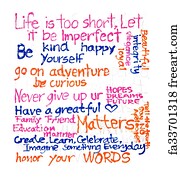 Life is too short, Let
it be Imperfect
Be kind happy
Yourself
Integrity
Beautiful
loyal
go on adventure
be curious
Never give up ur
HOPES
DREAMS
FUTURE
Have a greatful ♡
Family Friend
Education
Manner
Matters
Create, Learn, Celebrate,
Imagine Something Everyday
honor your WORDS
fa33701318 Free art prints